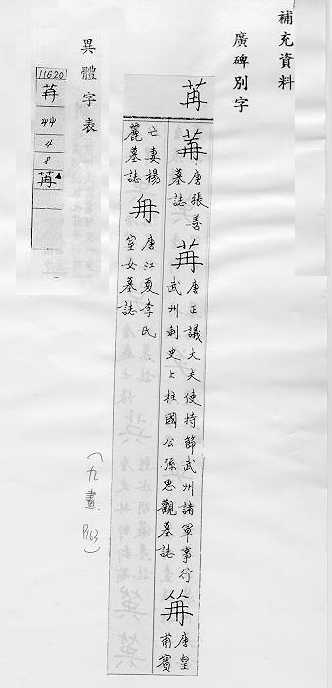 補充資料
廣碑別字
苒
苒唐張善墓誌
苒唐正議大夫使持節武州諸軍事行武州刺史上柱國公孫思觀墓誌
唐皇甫賓亡妻楊麗墓誌
冉唐江夏李氏室女墓誌
(九畫 P163)
異體字表
11620
苒
艸
4
8
苒